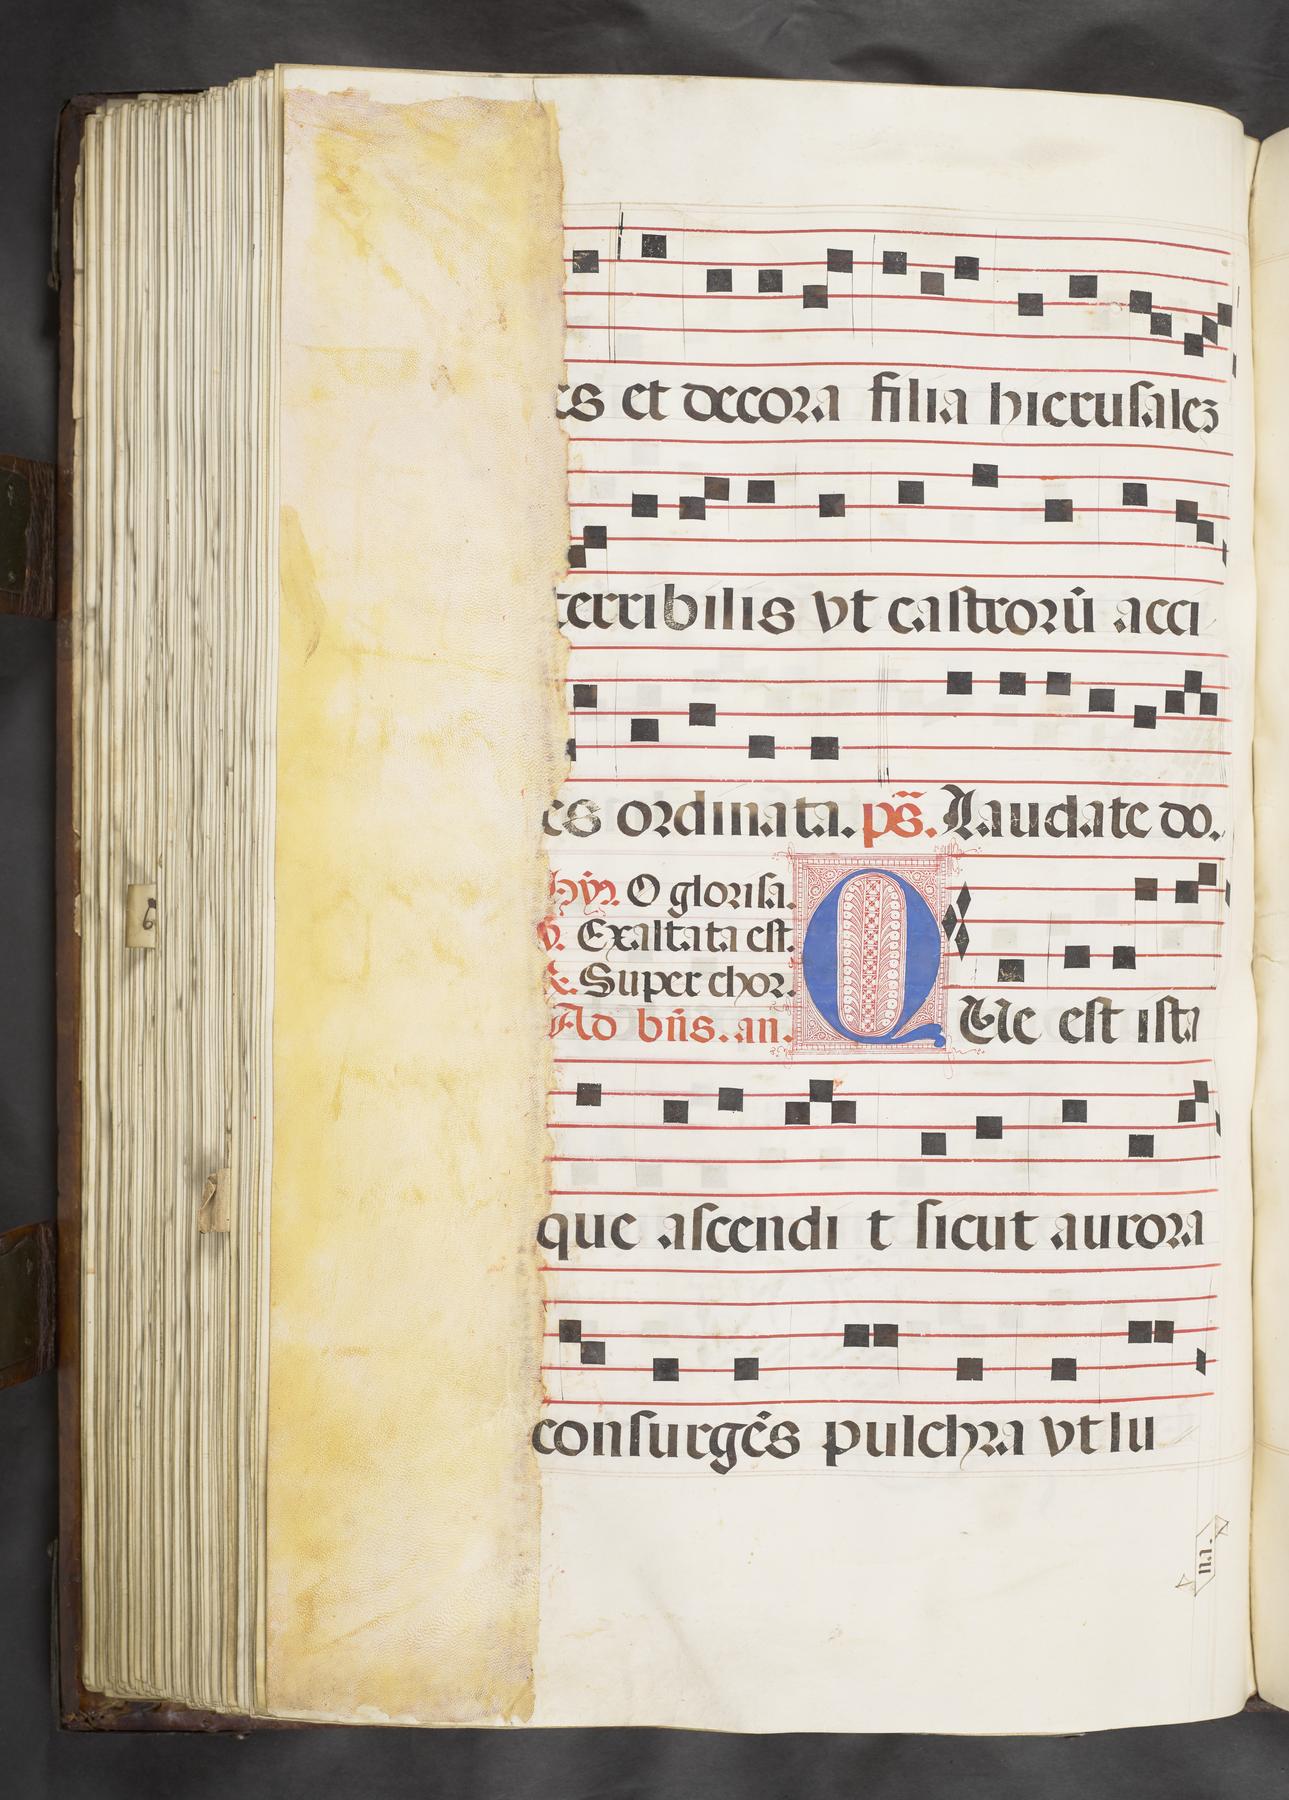 es et decora filia hierusalez
terribilis vt castrorū acci
es ordinata. ps̄. Laudate do.
hȳn. O gloriſa.
Exaltata est.
Super chor.
Ad bn̄s. an.
QUe est ista
que ascendi t sicut aurora
consurgēs pulchra vt lu
na.
6